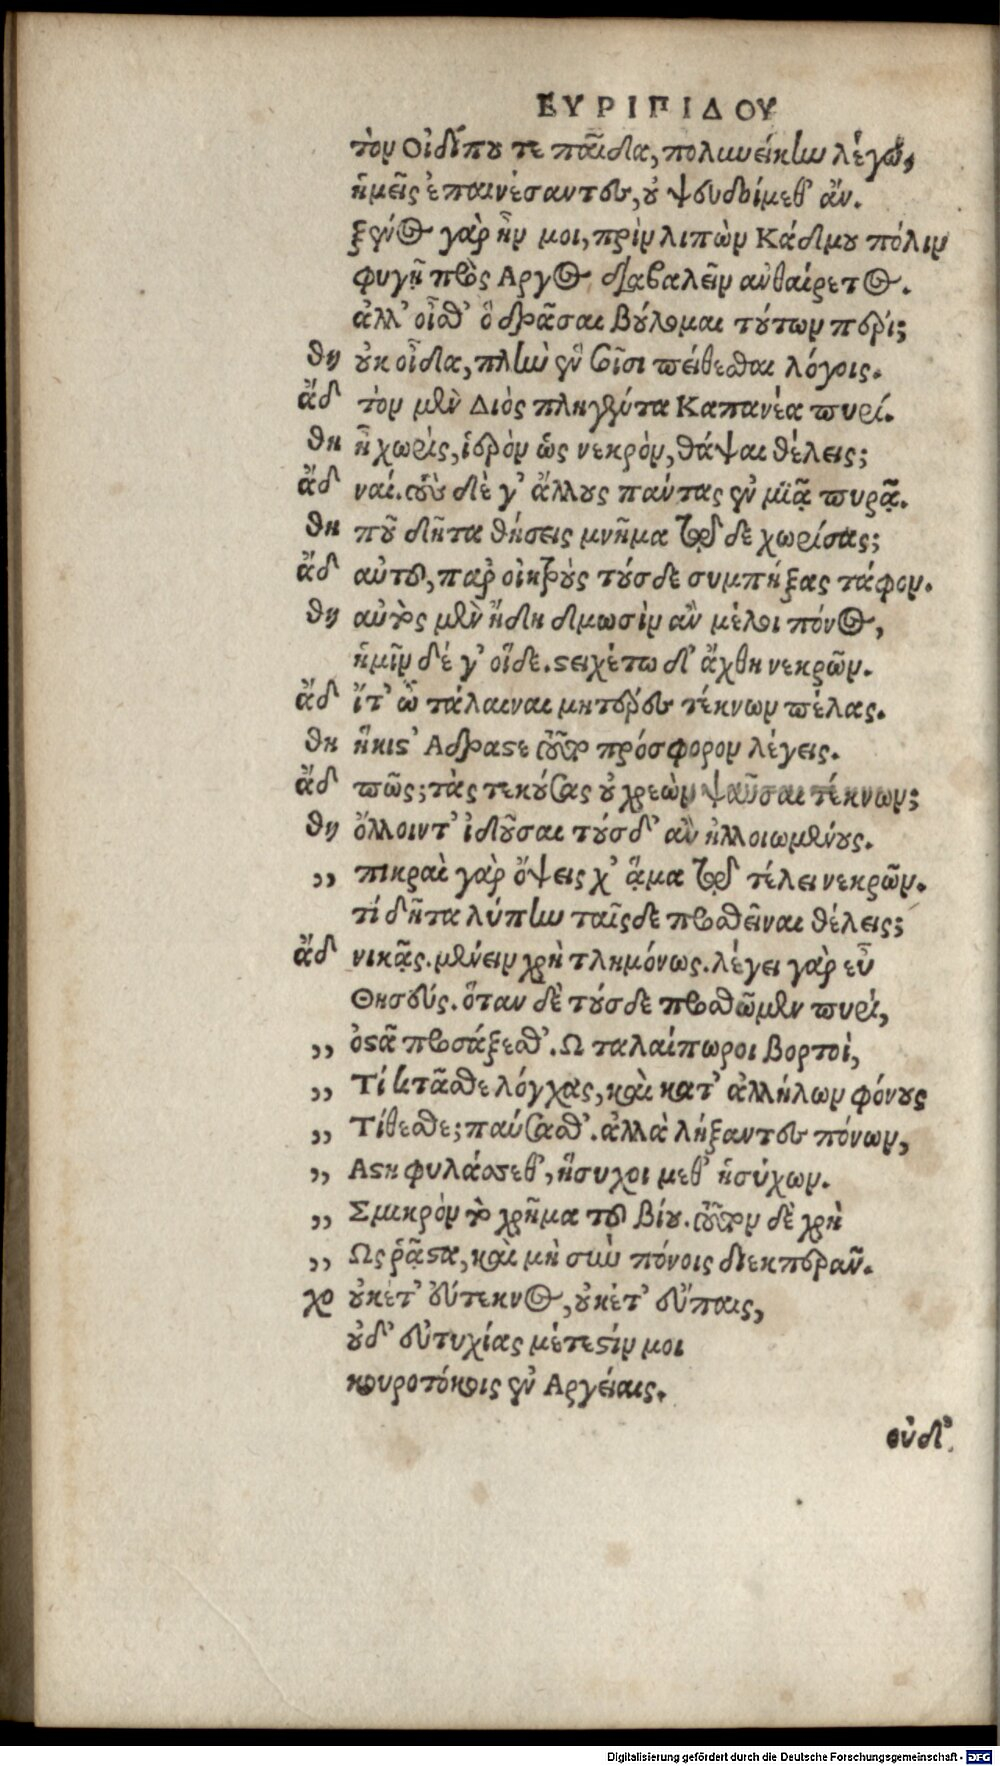 ΕΥΡΙΠΙΔΟΥ
τὸν Οἰδίπου τε παῖδα, πολυνείκην λέγω,
ἡμεῖς ἐπαινέσαντες, οὐ ψευδοίμεθ' ἄν.
ξένος γὰρ ἦν μοι, πρὶν λιπὼν Κάδμου πόλιν
φυγῇ πρὸς Αργος διαβαλεῖν αὐθαίρετος.
ἀλλ' οἶσθ' ὃ δρᾶσαι βούλομαι τούτων πέρι;
θη οὐκ οἶδα, πλὴν ἓν σοῖσι πείθεσθαι λόγοις.
ἄδ τὸν μὲν Διὸς πληγέντα Καπανέα πυρί.
θη ἦ χωρὶς, ἱερὸν ὡς νεκρὸν, θάψαι θέλεις;
ἄδ ναί. τοὺς δέ γ' ἄλλους πάντας ἐν μιᾷ πυρᾷ.
θη ποῦ δῆτα θήσεις μνῆμα τῷδε χωρίσας;
ἄδ αὐτοῦ, παρ' οἴκους τούσδε συμπήξας τάφον.
θη αὐτὸς μὲν ἤδη δμωσὶν ἂν μέλοι πόνος,
ἡμῖν δέ γ' οἵδε. στειχέτω δ' ἄχθη νεκρῶν.
ἄδ ἴτ' ὦ τάλαιναι μητέρες τέκνων πέλας.
θη ἥκιστ' Αδραστε τοῦτο πρόσφορον λέγεις.
ἄδ πῶς; τὰς τεκούσας οὐ χρεὼν ψαῦσαι τέκνων;
θη ὄλλοιντ' ἰδοῦσαι τούσδ' ἂν ἠλλοιωμένους.
„ πικραὶ γὰρ ὄψεις χ' ἅμα τῷδε τέλει νεκρῶν.
τί δῆτα λύπην ταῖσδε προσθεῖναι θέλεις;
ἄδ νικᾷς. μένειν χρὴ τλημόνως. λέγει γὰρ εὖ
Θησεύς. ὅταν δὲ τούσδε προσθῶμεν πυρί,
„ ὀστᾶ προσάξεσθ'. Ω ταλαίπωροι βορτοὶ,
„ Τί κτᾶσθε λόγχας, καὶ κατ' ἀλλήλων φόνους
„ Τίθεσθε; παύσασθ'. ἀλλὰ λήξαντες πόνων,
„ Αστη φυλάσσεθ', ἥσυχοι μεθ' ἡσύχων.
„ Σμικρὸν τὸ χρῆμα τοῦ βίου. τοῦτον δὲ χρὴ
„ Ως ῥᾷστα, καὶ μὴ σὺν πόνοις διεκπερᾶν.
χο οὐκέτ' εὔτεκνος, οὐκέτ' εὔπαις,
οὐδ' εὐτυχίας μέτεστίν μοι
κουροτόκοις ἐν Αργείαις.
οὐδ'
Digitalisierung gefördert durch die Deutsche Forschungsgemeinschaft - DFG